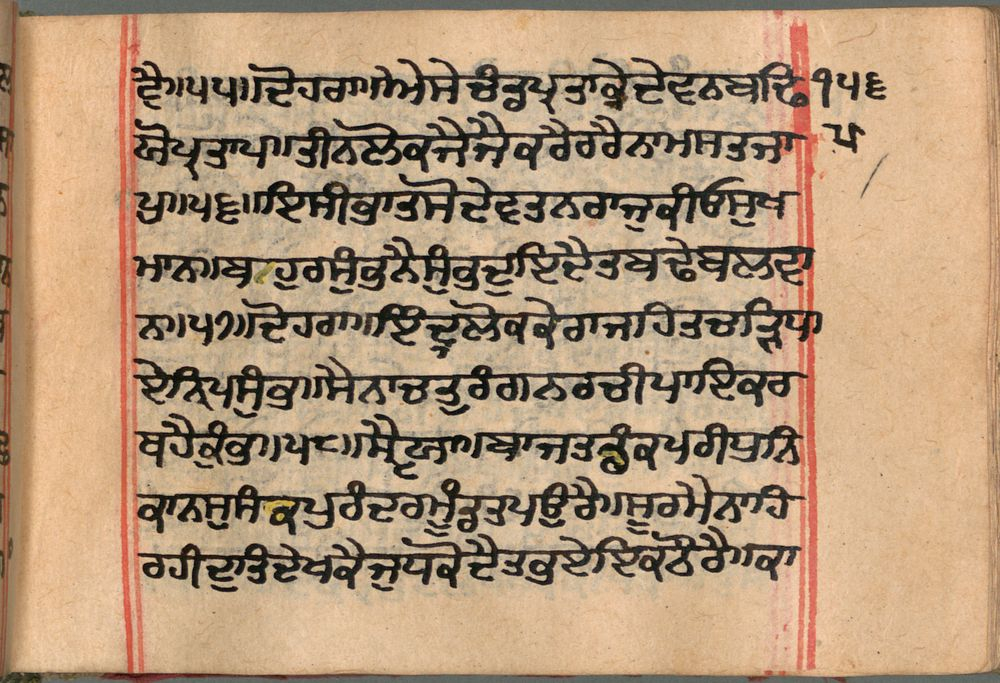 ਵੈ॥੫੫॥ਦੋਹਰਾ॥ਐਸੇ ਚੰਡ ਪ੍ਰਤਾਕੇ ਦੇਵਨ ਬਢਿ ੧੫੬
ਓ ਪ੍ਰਤਾਪ॥ਤੀਨ ਲੋਕ ਜੈ ਜੈ ਕਰੈ ਰਰੈ ਨਾਮ ਸਤ ਜਾ ਪ
ਪ॥੫੬॥ਇਸੀ ਭਾਤ ਸੋ ਦੇਵਤਨ ਰਾਜੁ ਕੀਓ ਸੁਖ
ਮਾਨ॥ਬਹੁਰ ਸੁੰਭੁ ਨੈਸੁੰਭੁ ਦੁਇ ਦੈਤ ਬਢੇ ਬਲਵਾ
ਨ॥੫੭॥ਦੋਹਰਾ॥ਇੰਦ੍ਰ ਲੋਕ ਕੇ ਰਾਜ ਹਿਤ ਚੜਿ ਧਾ
ਏ ਨ੍ਰਿਪ ਸੁੰਭ॥ਸੈਨਾ ਚਤੁਰੰਗਨ ਰਚੀ ਪਾਇਕ ਰ
ਥ ਹੈ ਕੁੰਭ॥੫੮॥ਸ੍ਵੈਯਾ॥ਬਾਜਤ ਡੰਕ ਪਰੀ ਧੁਨਿ
ਕਾਨ ਸੁ ਸੰਕ ਪੁਰੰਦਰ ਮੂੰਦਤ ਪਉਰੈ॥ਸੂਰ ਮੈ ਨਾਹਿ
ਰਹੀ ਦੁਤਿ ਦੇਖ ਕੈ ਜੁਧ ਕੋ ਦੈਤ ਭਏ ਇਕ ਠੌਰੈ॥ਕਾ